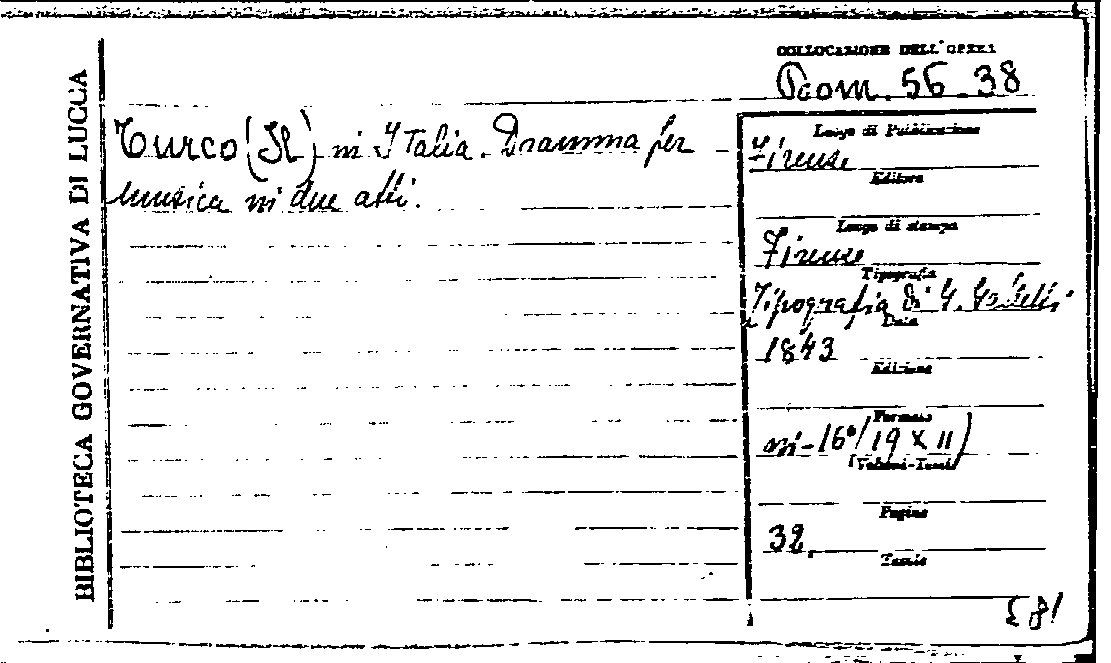 BIBLIOTECA GOVERNATIVA DI LUCCA
COLLOCAZIONE DELL'OPERA
56-38
Turco (Il) in Italia. Dramma per
musica in due atti.
Luogo di Pubblicazione
Firenze
Editore
Luogo di stampa
Firenze
Tipografia
Tipografia di G.
Data
1843
Edizione
Formato
in-16° (19 x 11)
(Volumi-Tomi)
Pagine
32.
Tavole